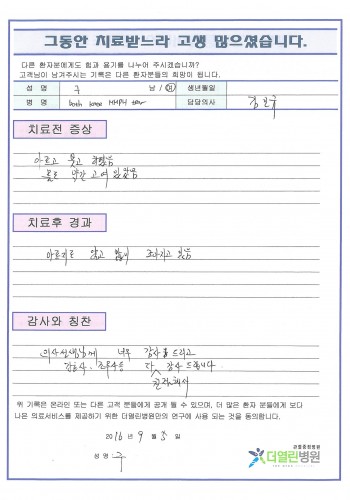 그동안 치료받느라 고생 많으셨습니다.
다른 환자분에게도 힘과 용기를 나누어 주시겠습니까?
고객님이 남겨주시는 기록은 다른 환자분들의 희망이 됩니다.
성 명 구 남 / 여 생년월일
병 명 both knee MMPH tear 담당의사 김
치료전 증상
아프고 붓고
물도 약간 고여 있었음
치료후 경과
아프지도 않고 많이 좋아지고 있음
감사와 칭찬
의사선생님께 너무 감사를 드리고
간호사, 다 감사 드립니다
위 기록은 온라인 또는 다른 고객 분들에게 공개 될 수 있으며, 더 많은 환자 분들에게 보다
나은 의료서비스를 제공하기 위한 더열린병원만의 연구에 사용 되는 것을 동의합니다.
2016 년 9 월 5 일
성 명 : 구
관절중점병원
더열린병원